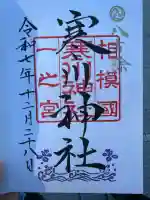 八方除
相模國
寒川神社
寒川神社
一之宮
令和七年十二月二十八日